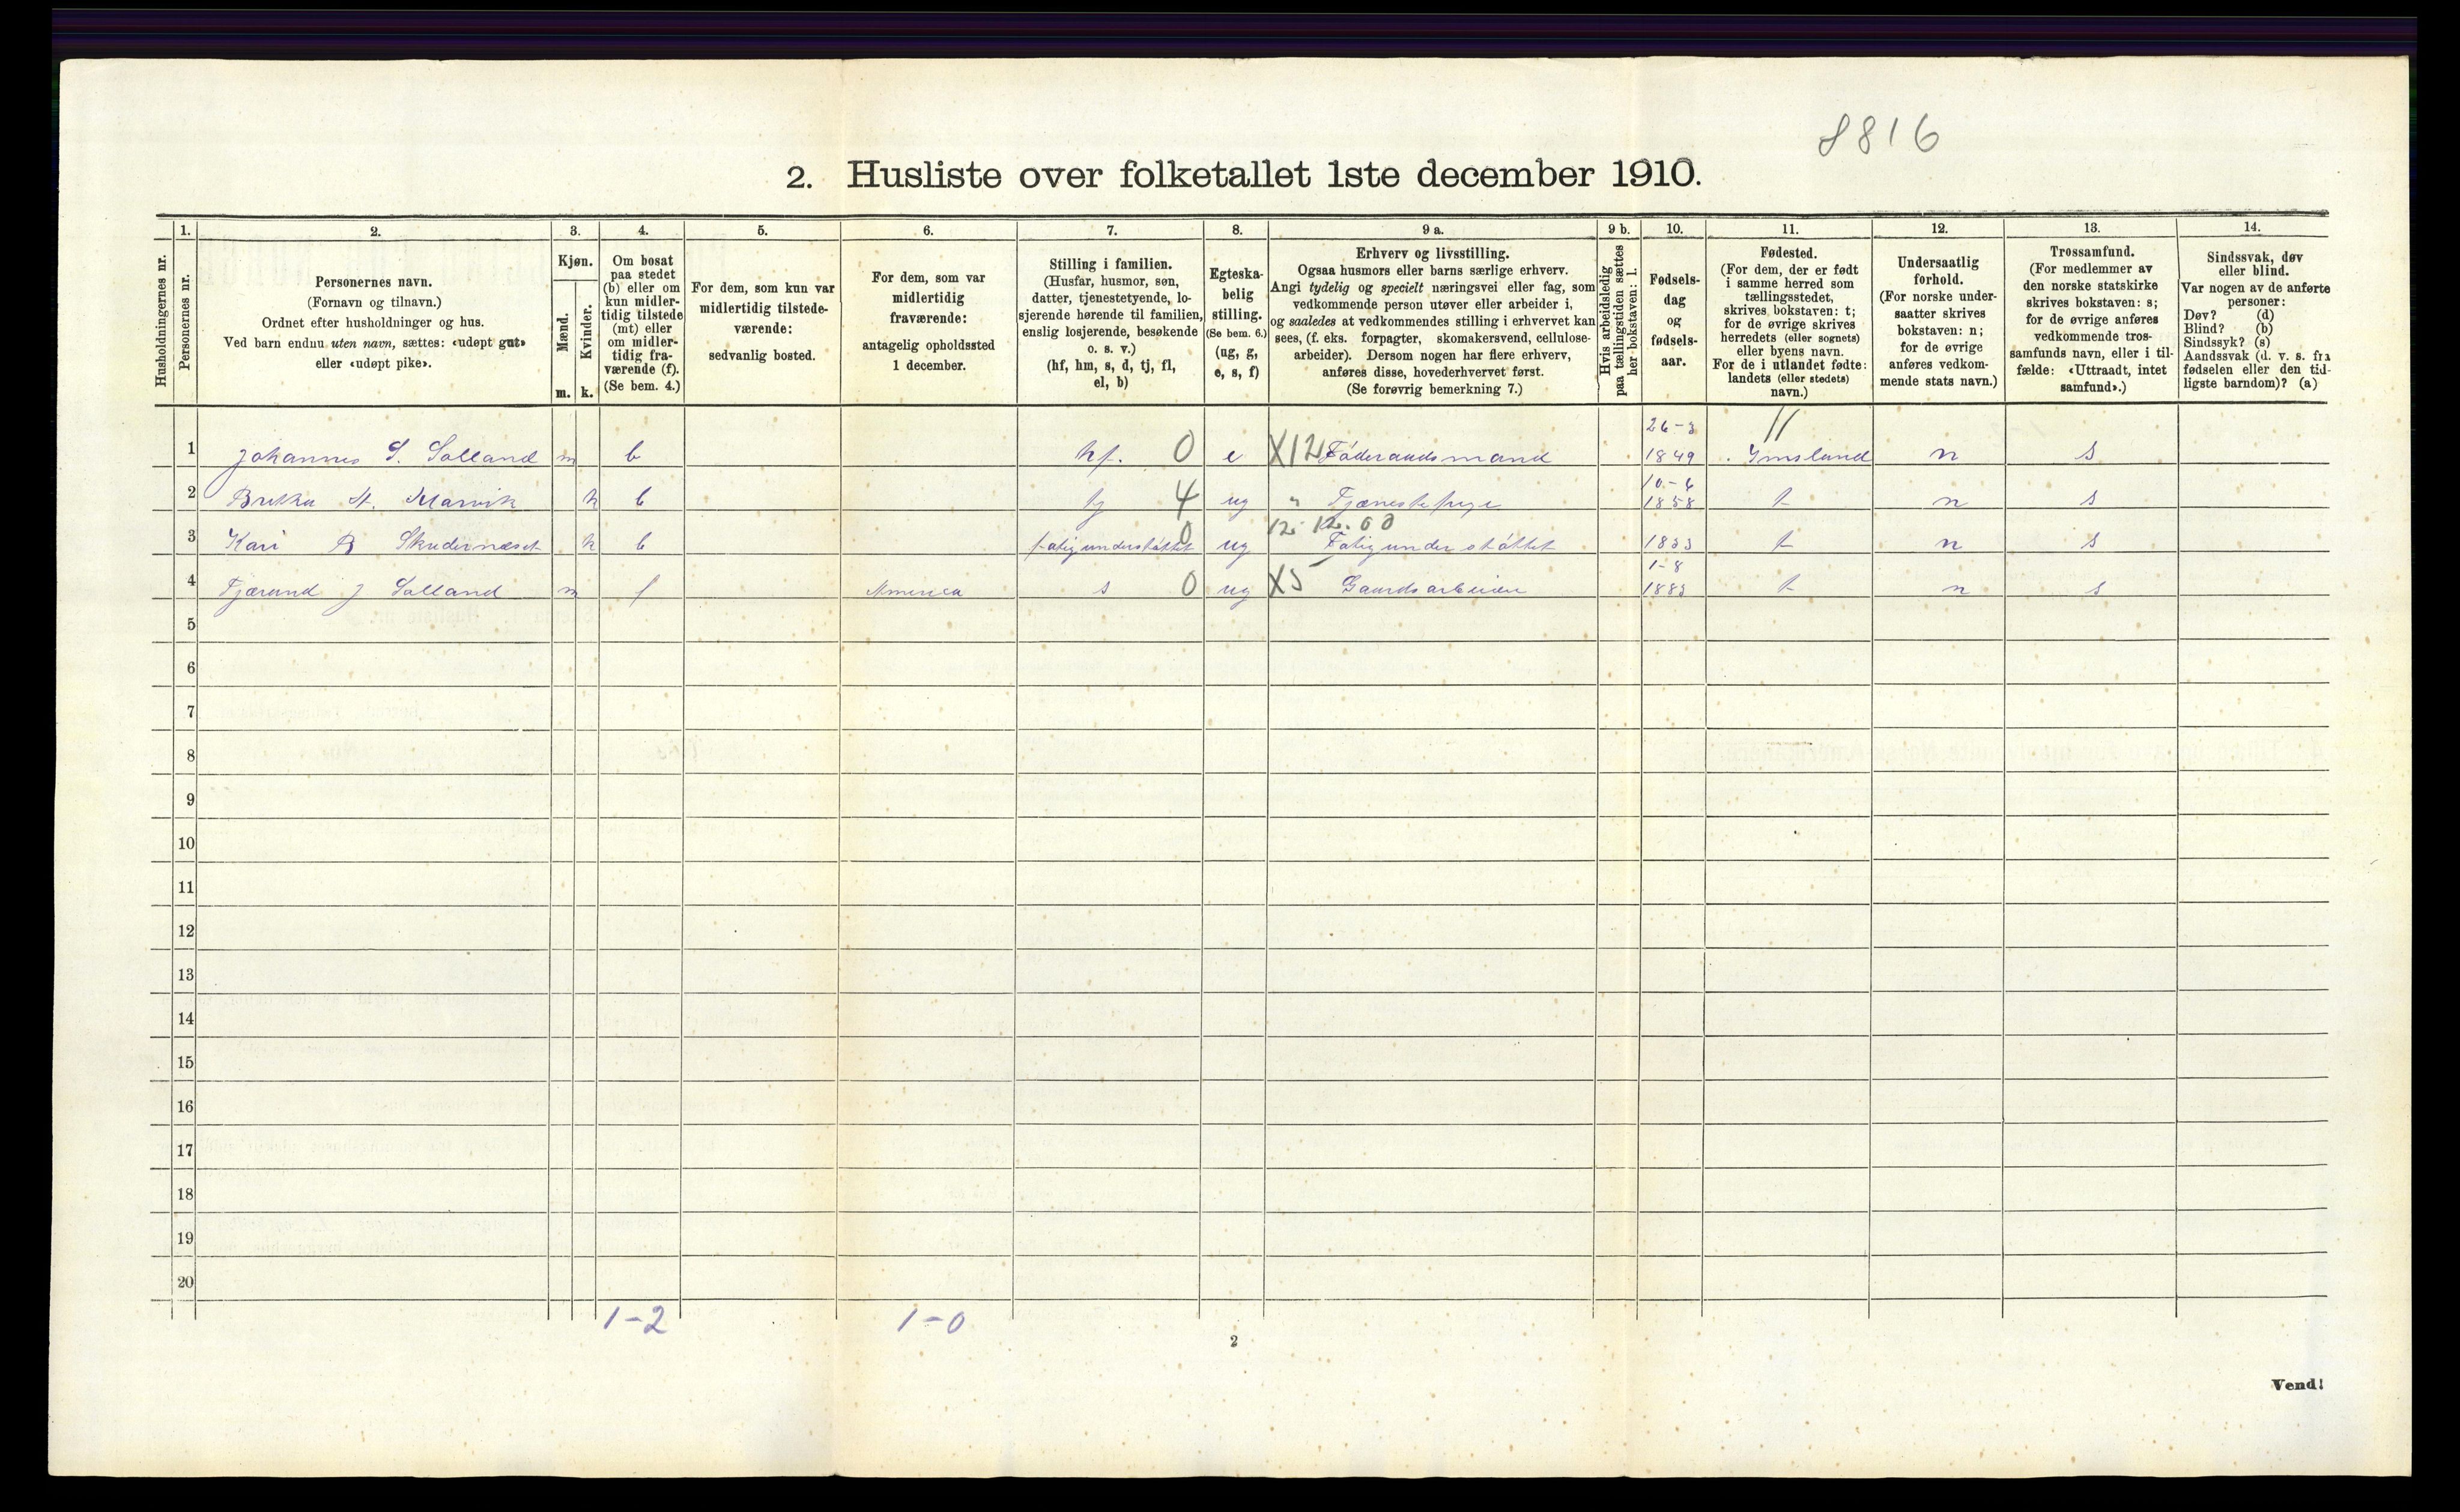 8816
2. Husliste over folketallet 1ste december 1910.
Husholdningernes nr.
1.
Personernes nr.
2.
Personernes navn.
(Fornavn og tilnavn.)
Ordnet efter husholdninger og hus.
Ved barn endnu uten navn, sættes: «udøpt gut»
eller «udøpt pike».
3.
Kjøn.
Mænd.
Kvinder.
m. k.
4.
Om bosat
paa stedet
(b) eller om
kun midler-
tidig tilstede
(mt) eller
om midler-
tidig fra-
værende (f).
(Se bem. 4.)
5.
For dem, som kun var
midlertidig tilstede-
værende:
sedvanlig bosted.
6.
For dem, som var
midlertidig
fraværende:
antagelig opholdssted
1 december.
7.
Stilling i familien.
(Husfar, husmor, søn,
datter, tjenestetyende, lo-
sjerende hørende til familien,
enslig losjerende, besøkende
o. s. v.)
(hf, hm, s, d, tj, fl,
el, b)
8.
Egteska-
belig
stilling.
(Se bem. 6.)
(ug, g,
e, s, f)
9 a.
Erhverv og livsstilling.
Ogsaa husmors eller barns særlige erhverv.
Angi tydelig og specielt næringsvei eller fag, som
vedkommende person utøver eller arbeider i,
og saaledes at vedkommendes stilling i erhvervet kan
sees, (f. eks. forpagter, skomakersvend, cellulose-
arbeider). Dersom nogen har flere erhverv,
anføres disse, hovederhvervet først.
(Se forøvrig bemerkning 7.)
9 b.
Hvis arbeidsledig
paa tællingstiden sættes
her bokstaven: l.
10.
Fødsels-
dag
og
fødsels-
aar.
11.
Fødested.
(For dem, der er født
i samme herred som
tællingsstedet,
skrives bokstaven: t;
for de øvrige skrives
herredets (eller sognets)
eller byens navn.
For de i utlandet fødte:
landets (eller stedets)
navn.)
12.
Undersaatlig
forhold.
(For norske under-
saatter skrives
bokstaven: n;
for de øvrige
anføres vedkom-
mende stats navn.)
13.
Trossamfund.
(For medlemmer av
den norske statskirke
skrives bokstaven: s;
for de øvrige anføres
vedkommende tros-
samfunds navn, eller i til-
fælde: «Uttraadt, intet
samfund».)
14.
Sindssvak, døv
eller blind.
Var nogen av de anførte
personer:
Døv? (d)
Blind? (b)
Sindssyk? (s)
Aandssvak (d. v. s. fra
fødselen eller den tid-
ligste barndom)? (a)
1 Johannes S. Solland m b hf. 0 e X12 Føderaadsmand 26-3 1849 Imsland n s
2 H. Marvik k b tj 4 ug " 10-6 1858 t n s
3 Kari B Skudernæset k b fatigunderstøttet 0 ug 12. 12. 00 Fatigunderstøttet n s
4 Tjærand J Solland m f America s 0 ug X5 Gaardsarbeider 1-8 1883 t n s
5
6
7
8
9
10
11
12
13
14
15
16
17
18
19
20
1-2 1-0
2
Vend!